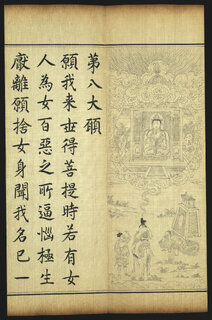 第八大願
願我来世得菩提時若有女
人為女百惡之所逼惱極生
厭離願捨女身聞我名已一